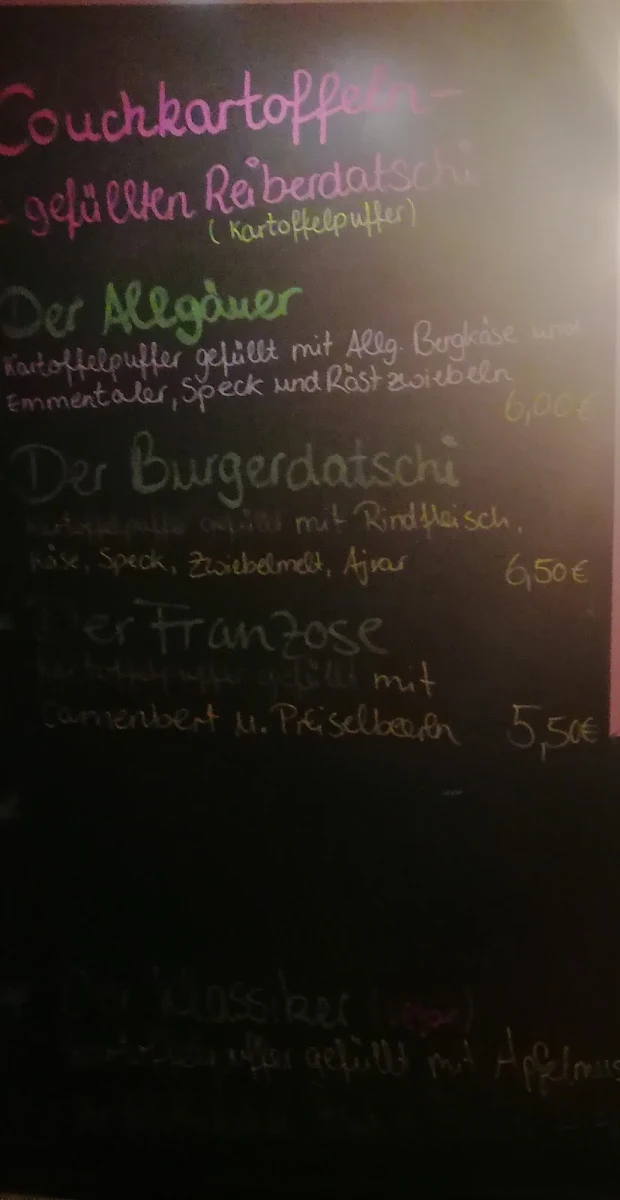 Couchkartoffeln-
gefüllten Reiberdatschi
(Kartoffelpuffer)
Der Allgäuer
Kartoffelpuffer gefüllt mit Allg. Bergkäse und
Emmentaler, Speck und Röstzwiebeln
6,00€
Der Burgerdatschi
Kartoffelpuffer gefüllt mit Rindfleisch,
Käse, Speck, Zwiebelmelt, Ajvar 6,50€
Der Franzose
Kartoffelpuffer gefüllt mit
Camenbert u. Preiselbeeren 5,50€
Der Klassiker (vegan)
Kartoffelpuffer gefüllt mit Apfelmus